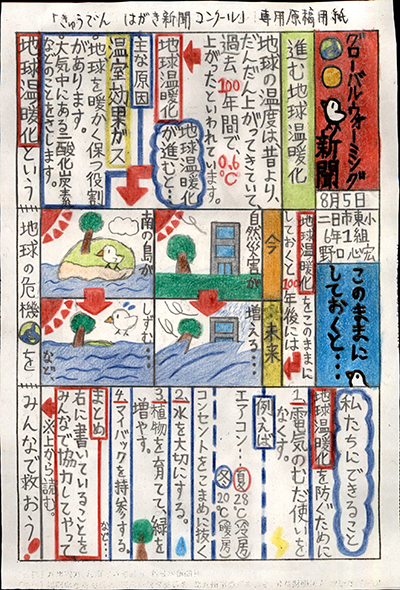 「きゅうでん はがき新聞コンクール」専用原稿用紙
グローバルウォーミング新聞
8月5日
二日市東小
6年1組
野口 心宏
進む地球温暖化
地球の温度は昔より、
だんだん上がってきていて、
過去100年間で、0.6℃
上がったといわれています。
地球温暖化
地球温暖化が進むと…
主な原因
温室効果ガス
地球を暖かく保つ役割
があります。
大気中にある二酸化炭素
などのことをさします。
このままに
しておくと…
地球温暖化をこのままに
しておくと100年後には
今
未来
自然災害が
増える…
南の島が
しずむ…
など
私たちにできること
地球温暖化を防ぐために
1.電気のむだ使いを
なくす。
例えば
エアコン…夏28℃(冷房)
冬20℃(暖房)
コンセントをこまめに抜く
2.水を大切にする。
3.植物を育てて、緑を
増やす。
4.マイバックを持参する。
など…
まとめ
右に書いていることを
みんなで協力してやって
地球温暖化という地球の危機を
みんなで救おう!
※上から読む。